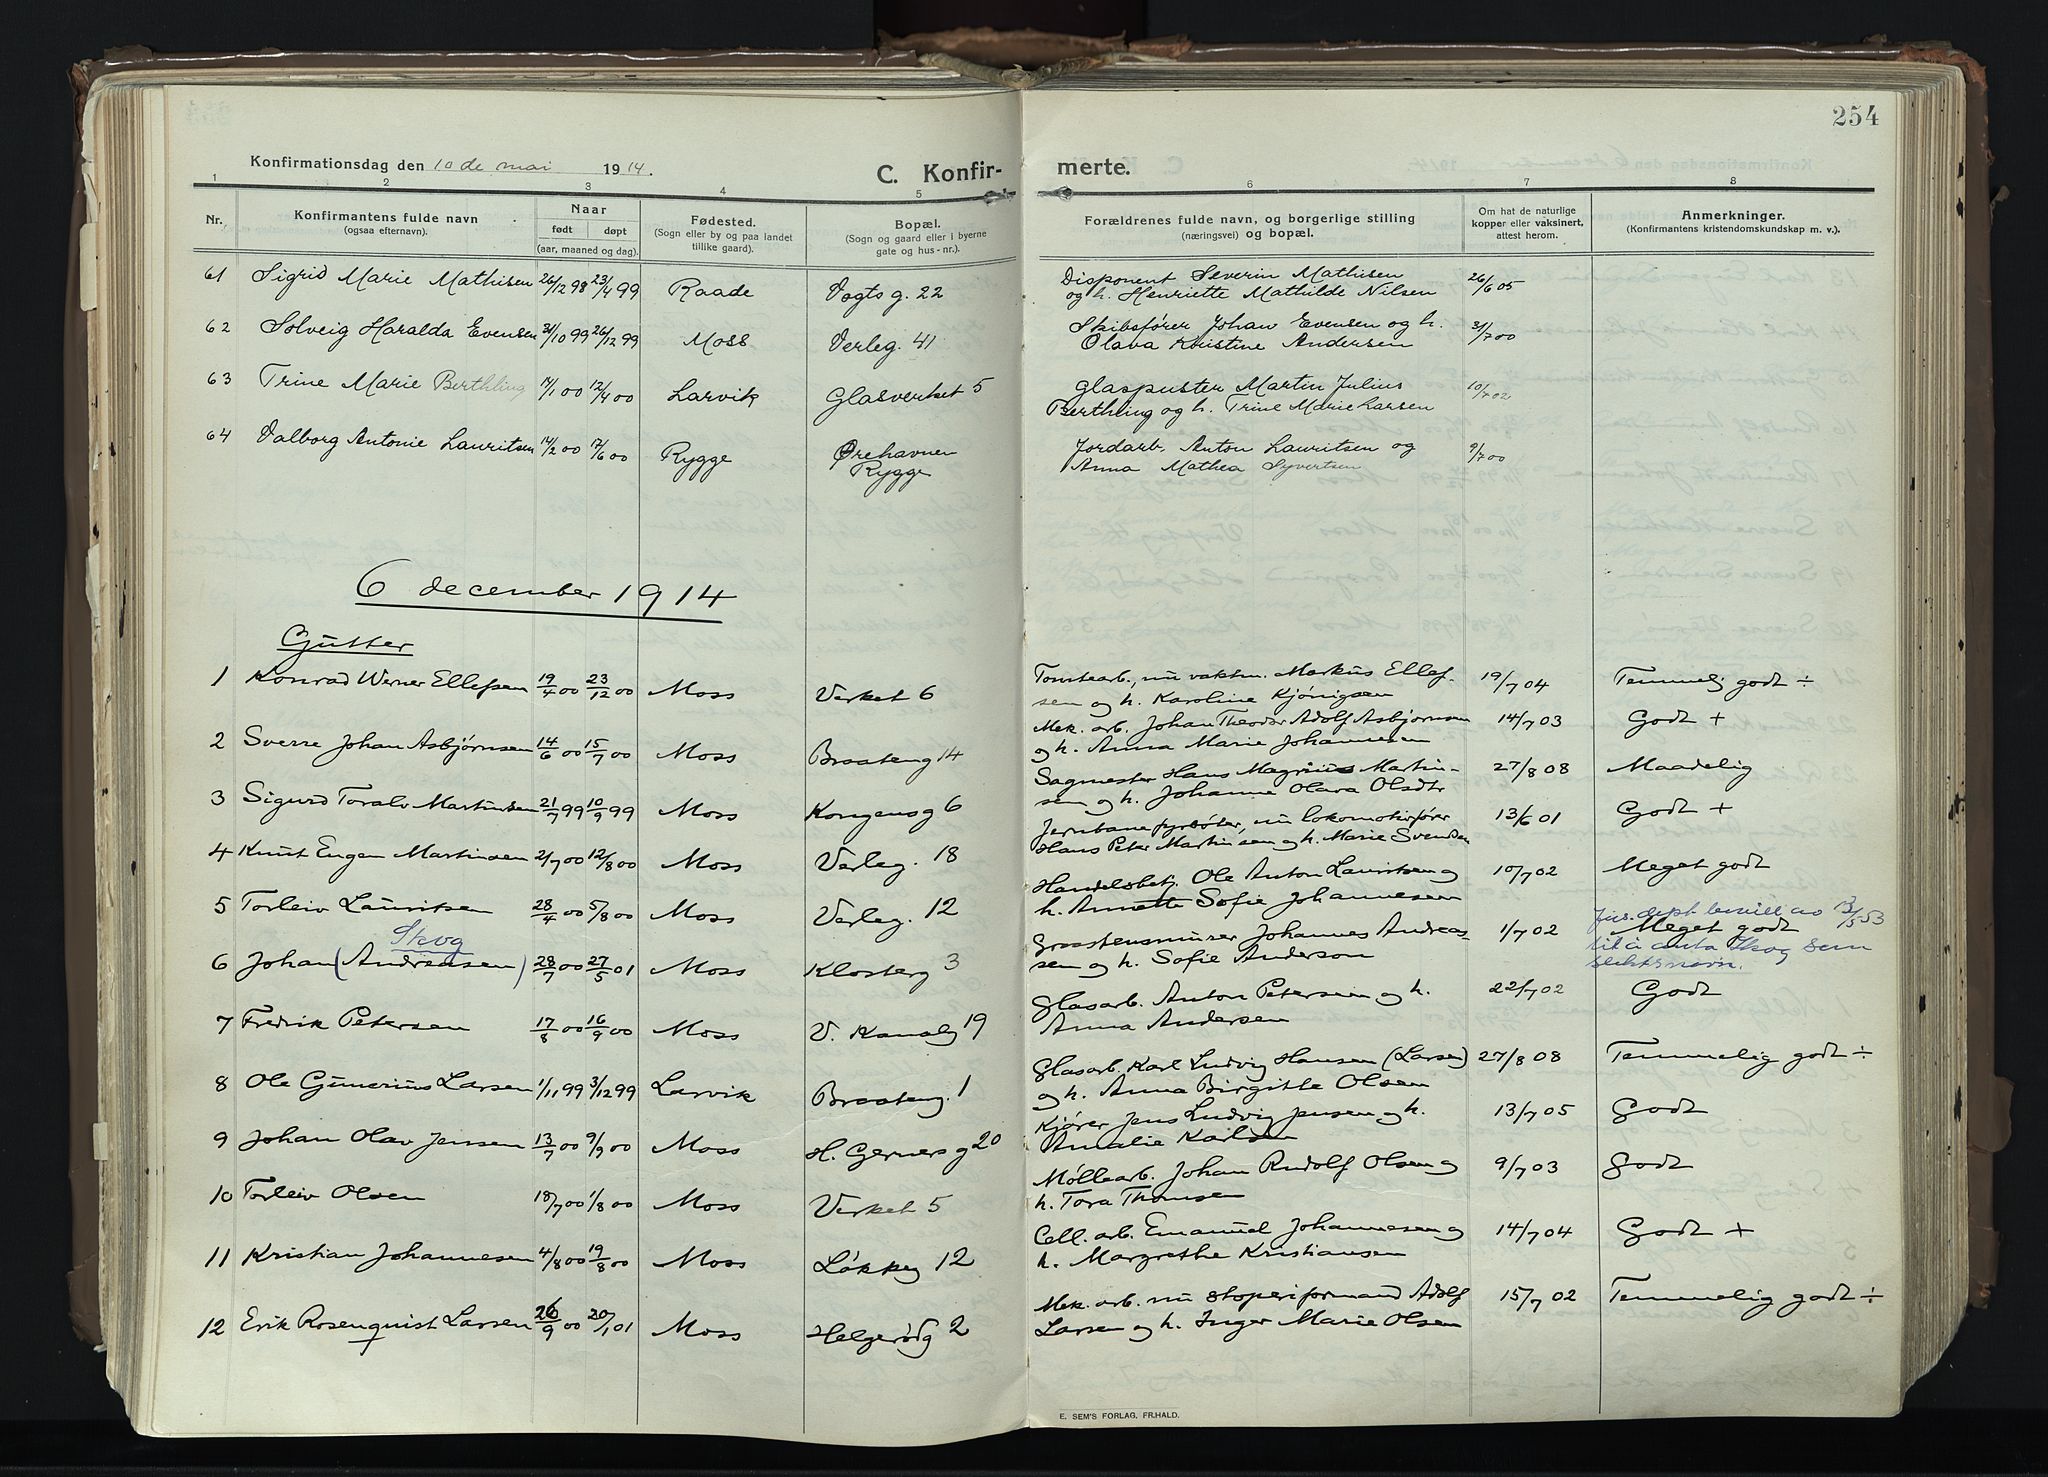 254
Konfirmationsdag den 10 de mai 1914.
C. Konfir- merte.
1 2 3 4 5 6 7 8
Nr. | Konfirmantens fulde navn (ogsaa efternavn). | Naar født døpt (aar, maaned og dag). | Fødested. (Sogn eller by og paa landet tillike gaard). | Bopæl. (Sogn og gaard eller i byerne gate og hus-nr.). | Forældrenes fulde navn, og borgerlige stilling (næringsvei) og bopæl. | Om hat de naturlige kopper eller vaksinert, attest herom. | Anmerkninger. (Konfirmantens kristendomskundskap m. v.).
61 Sigrid Marie Mathisen 26/12 98 23/4 99 Raade Vogts g. 22 Disponent Severin Mathisen 26/6 05
og h. Henriette Mathilde Nilsen
62 Solveig Haralda Evensen 31/10 99 26/12 99 Moss Verleg. 41 Skibsfører Johan Evensen og h. 31/7 00
Olava Kristine Andersen
63 Trine Marie Berthling 14/1 00 12/4 00 Larvik Glasverket 5 Glaspuster Martin Julius 10/7 02
Berthling og h. Trine Marie Larsen
64 Valborg Antonie Lauritsen 14/2 00 17/6 00 Rygge Ørehavnen Jordarb. Anton Lauritsen og 9/7 00
Rygge Anna Mathea Syvertsen
6 december 1914
Gutter
1 Konrad Werner Ellefsen 19/4 00 23/12 00 Moss Verket 6 Tomtearb., nu vaktm. Markus Ellef- 19/7 04 Temmelig godt ÷
sen og h. Karoline Kjønigsen
2 Sverre Johan Asbjørnsen 14/6 00 15/7 00 Moss Braateng 14 Mek. arb. Johan Theodor Adolf Asbjørnsen 14/7 03 Godt +
og h. Anna Marie Johannesen
3 Sigurd Toralv Martinsen 21/7 99 10/9 99 Moss Kongensg 6 Sagmester Hans Magnus Martin- 27/8 08 Maadelig
sen og h. Johanne Olava Olsdtr
4 Knut Eugen Martinsen 2/7 00 12/8 00 Moss Verleg. 18 Jernbanefyrbøter, nu lokomotivfører 13/6 01 Godt +
Hans Peter Martinsen og h. Marie Svendsen
5 Torleiv Lauritsen 28/4 00 5/8 00 Moss Verleg. 12 Handelsbetj. Ole Anton Lauritsen og 10/7 02 Meget godt
h. Annette Sofie Johannesen
Skog
6 Johan (Andreasen) 28/7 00 27/5 01 Moss Klosterg 3 Graastensmurer Johannes Andreas- 1/7 02 Meget godt
sen og h. Sofie Anderson
Jus. dept. bevill. av 13/5 53
til å anta Skog som
slektsnavn.
7 Fredrik Petersen 17/8 00 16/9 00 Moss V. Kanalg 19 Glasarb. Anton Petersen og h. 22/7 02 Godt
Anna Andersen
8 Ole Gunerius Larsen 1/11 99 3/12 99 Larvik Braateng. 1 Glasarb. Karl Ludvig Hansen (Larsen) 27/8 08 Temmelig godt ÷
og h. Anna Birgitte Olsen
9 Johan Olav Jensen 13/7 00 9/9 00 Moss H. Gerners g 20 Kjører Jens Ludvig Jensen og h. 13/7 05 Godt
Amalie Karlsen
10 Torleiv Olsen 18/7 00 1/8 00 Moss Verket 5 Møllearb. Johan Rudolf Olsen og 9/7 03 Godt
h. Tora Thomsen
11 Kristian Johannesen 4/8 00 19/8 00 Moss Løkkeg 12 Cell. arb. Emanuel Johannesen og 14/7 04 Godt +
h. Margrethe Kristiansen
12 Erik Rosenquist Larsen 26/9 00 20/1 01 Moss Helgerødg 2 Mek. arb. nu støperiformand Adolf 15/7 02 Temmelig godt ÷
Larsen og h. Inger Marie Olsen
E. SEM'S FORLAG, FR.HALD.